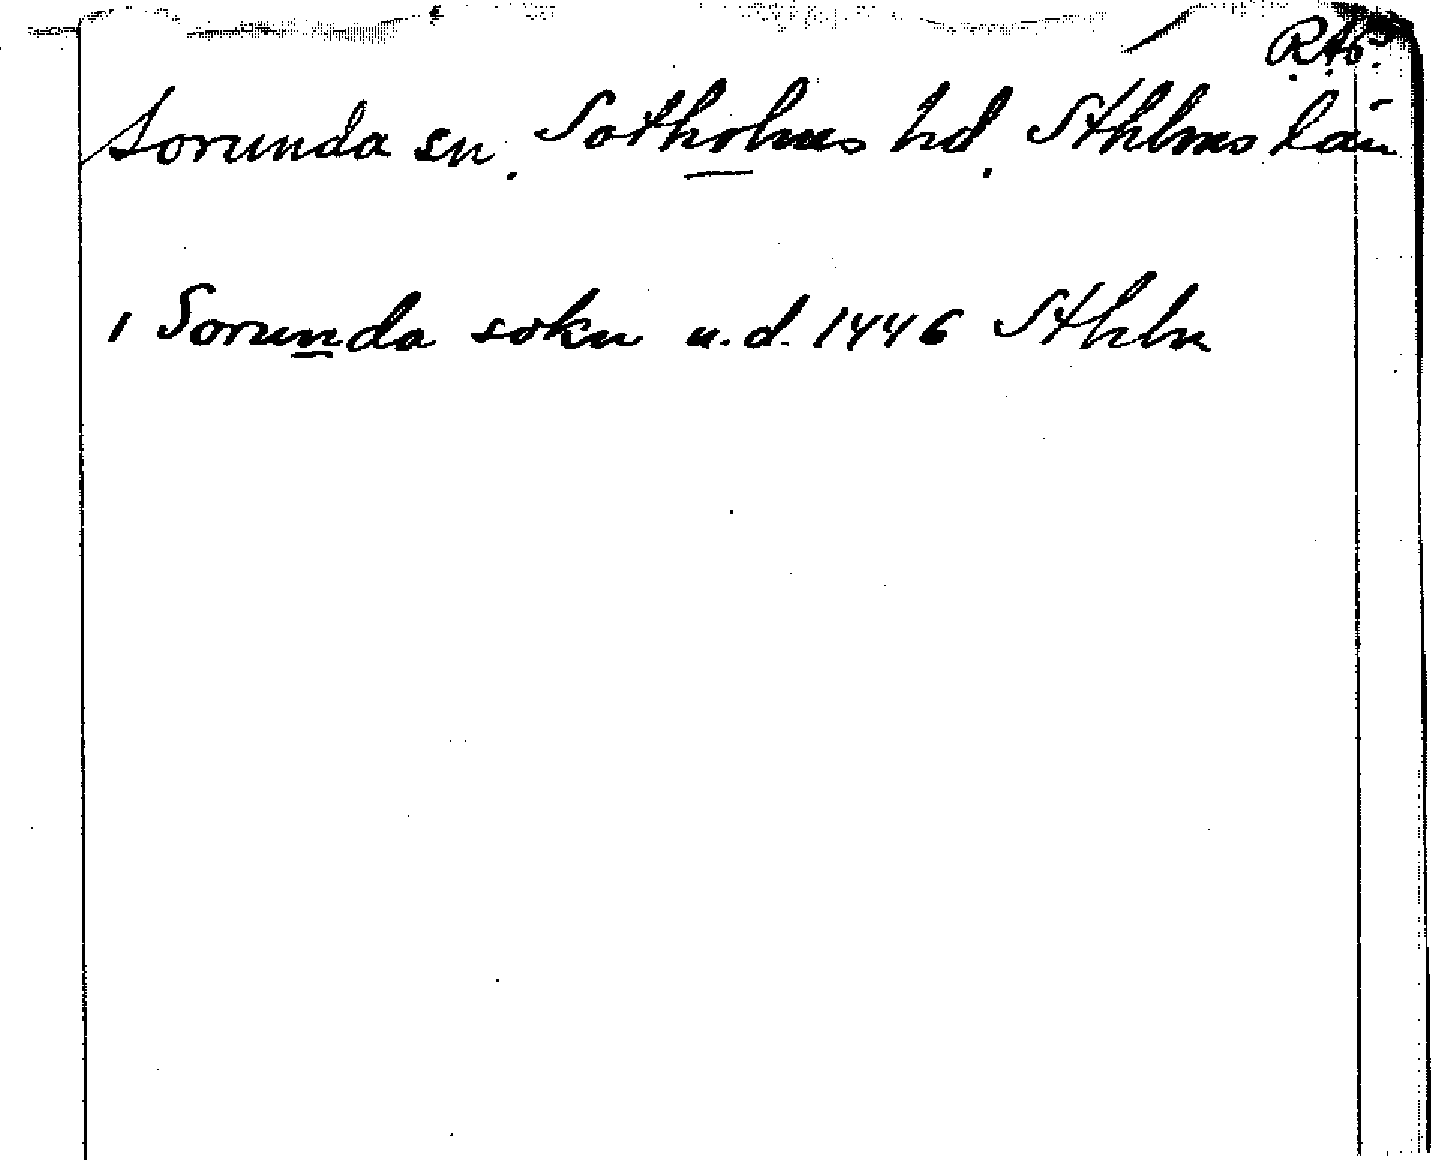 RAp.
Sorunda sn. Sotholms hd. Sthlms län
1 Sorunda sokn u.d. 1446 Sthlm